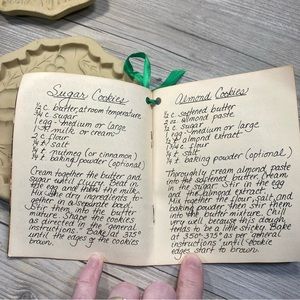 Sugar Cookies
½ c. butter, at room temperature
¾ c. sugar
1 egg - medium or large
1 milk or cream
2 c. flour
¼ t. salt
½ t. nutmeg (or cinnamon)
¼ t. baking powder (optional)
Cream together the butter and
sugar until fluffy. Beat in
the egg and then the milk.
Mix the dry ingredients to-
gether in a separate bowl.
Stir them into the butter
mixture. Shape the cookies
as directed in the "general
instructions". Bake at 375°
until the edges of the cookies
brown.
Almond Cookies
½ c. softened butter
2 oz. almond paste
½ c. sugar
1 egg - medium or large
½ t. almond extract
flour
¼ t. salt
¼ t. baking powder (optional)
Thoroughly cream almond paste
into the softened butter. Cream
in the sugar. Stir in the egg
and the almond extract.
Mix together the flour, salt and
baking powder, then stir them
into the butter mixture. Chill
very well because this dough
tends to be a little sticky. Bake
at 350°-375° as per general
instructions until cookie
edges start to brown.